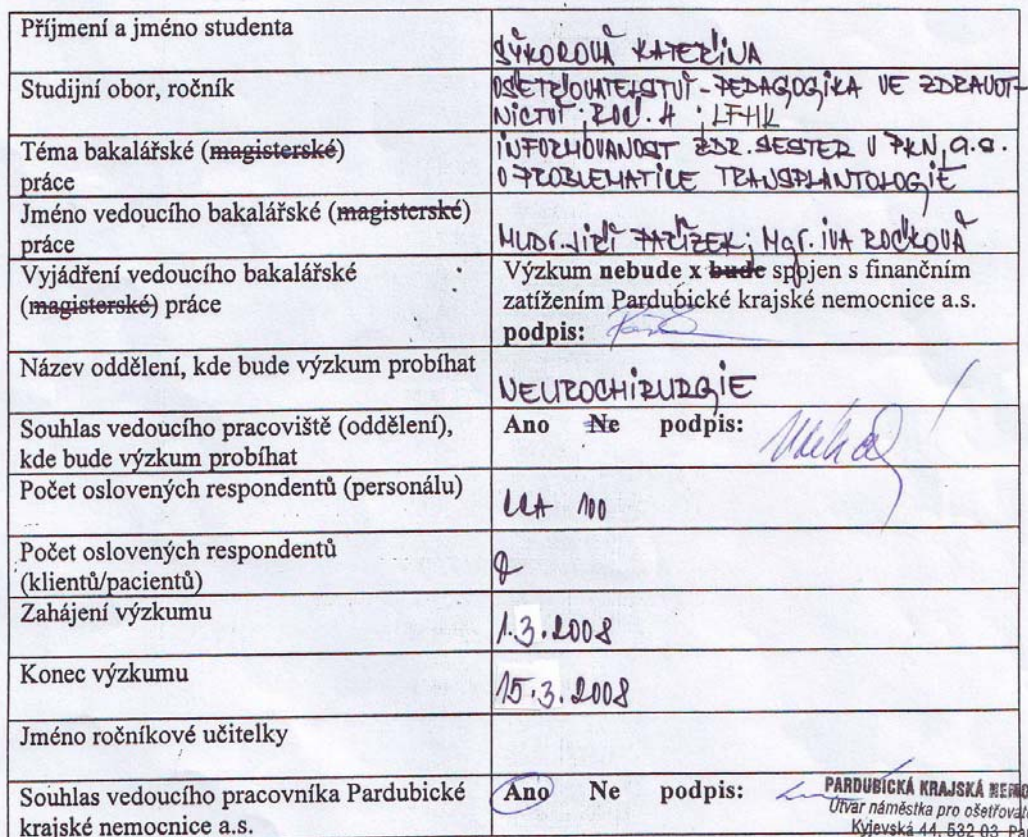 Příjmení a jméno studenta
SÝKOROVÁ KATEŘINA
Studijní obor, ročník
OŠETŘOVATELSTVÍ - PEDAGOGIKA VE ZDRAVOT-
NICTVÍ ; ROČ. 4 ; LFHK
Téma bakalářské (magisterské)
práce
INFORMOVANOST ZDR. SESTER V PKN, a.s.
O PROBLEMATICE TRANSPLANTOLOGIE
Jméno vedoucího bakalářské (magisterské)
práce
MUDr. JIŘÍ PAŘÍZEK; Mgr. IVA ROČKOVÁ
Vyjádření vedoucího bakalářské
(magisterské) práce
Výzkum nebude x bude spojen s finančním
zatížením Pardubické krajské nemocnice a.s.
podpis:
Název oddělení, kde bude výzkum probíhat
NEUROCHIRURGIE
Souhlas vedoucího pracoviště (oddělení),
kde bude výzkum probíhat
Ano Ne podpis:
Počet oslovených respondentů (personálu)
CCA 100
Počet oslovených respondentů
(klientů/pacientů)
Zahájení výzkumu
1.3.2008
Konec výzkumu
15.3.2008
Jméno ročníkové učitelky
Souhlas vedoucího pracovníka Pardubické
krajské nemocnice a.s.
Ano Ne podpis:
PARDUBICKÁ KRAJSKÁ NEMO
Útvar náměstka pro ošetřovat
Kyjevská 44, 532 03 Pa